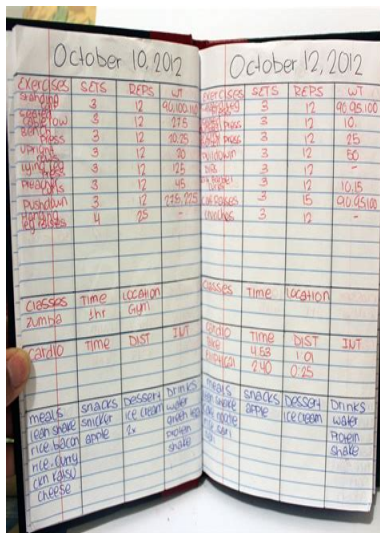 October 10, 2012
Exercises SETS REPS WT
standing 3 12 90,100,110
seated cable row 3 12 27.5
Bench press 3 12 20,25
upright rows 3 12 20
lying leg press 3 12 125
Preacher curls 3 12 45
pushdown 3 12 27.5, 22.5
Hanging leg raises 4 25 -
Classes Time LOCATION
zumba 1hr Gym
Cardio TIME DIST INT
meals snacks Dessert Drinks
lean shake snicker ice cream water
rice bacon apple 2x green tea
rice curry protein
ckn shake
cheese
October 12, 2012
Exercises SETS REPS WT
3 12 90,95,100
press 3 12 10
press 3 12 25
pulldown 3 12 50
Dips 3 12 -
3 12 10,15
calf raises 3 15 90,95,100
crunches 3 12 -
Classes Time Location
Cardio TIME DIST INT
Bike 4:53 1.01
elliptical 2:40 0.25
meals snacks Dessert Drinks
lean shake apple ice cream water
Protein
shake